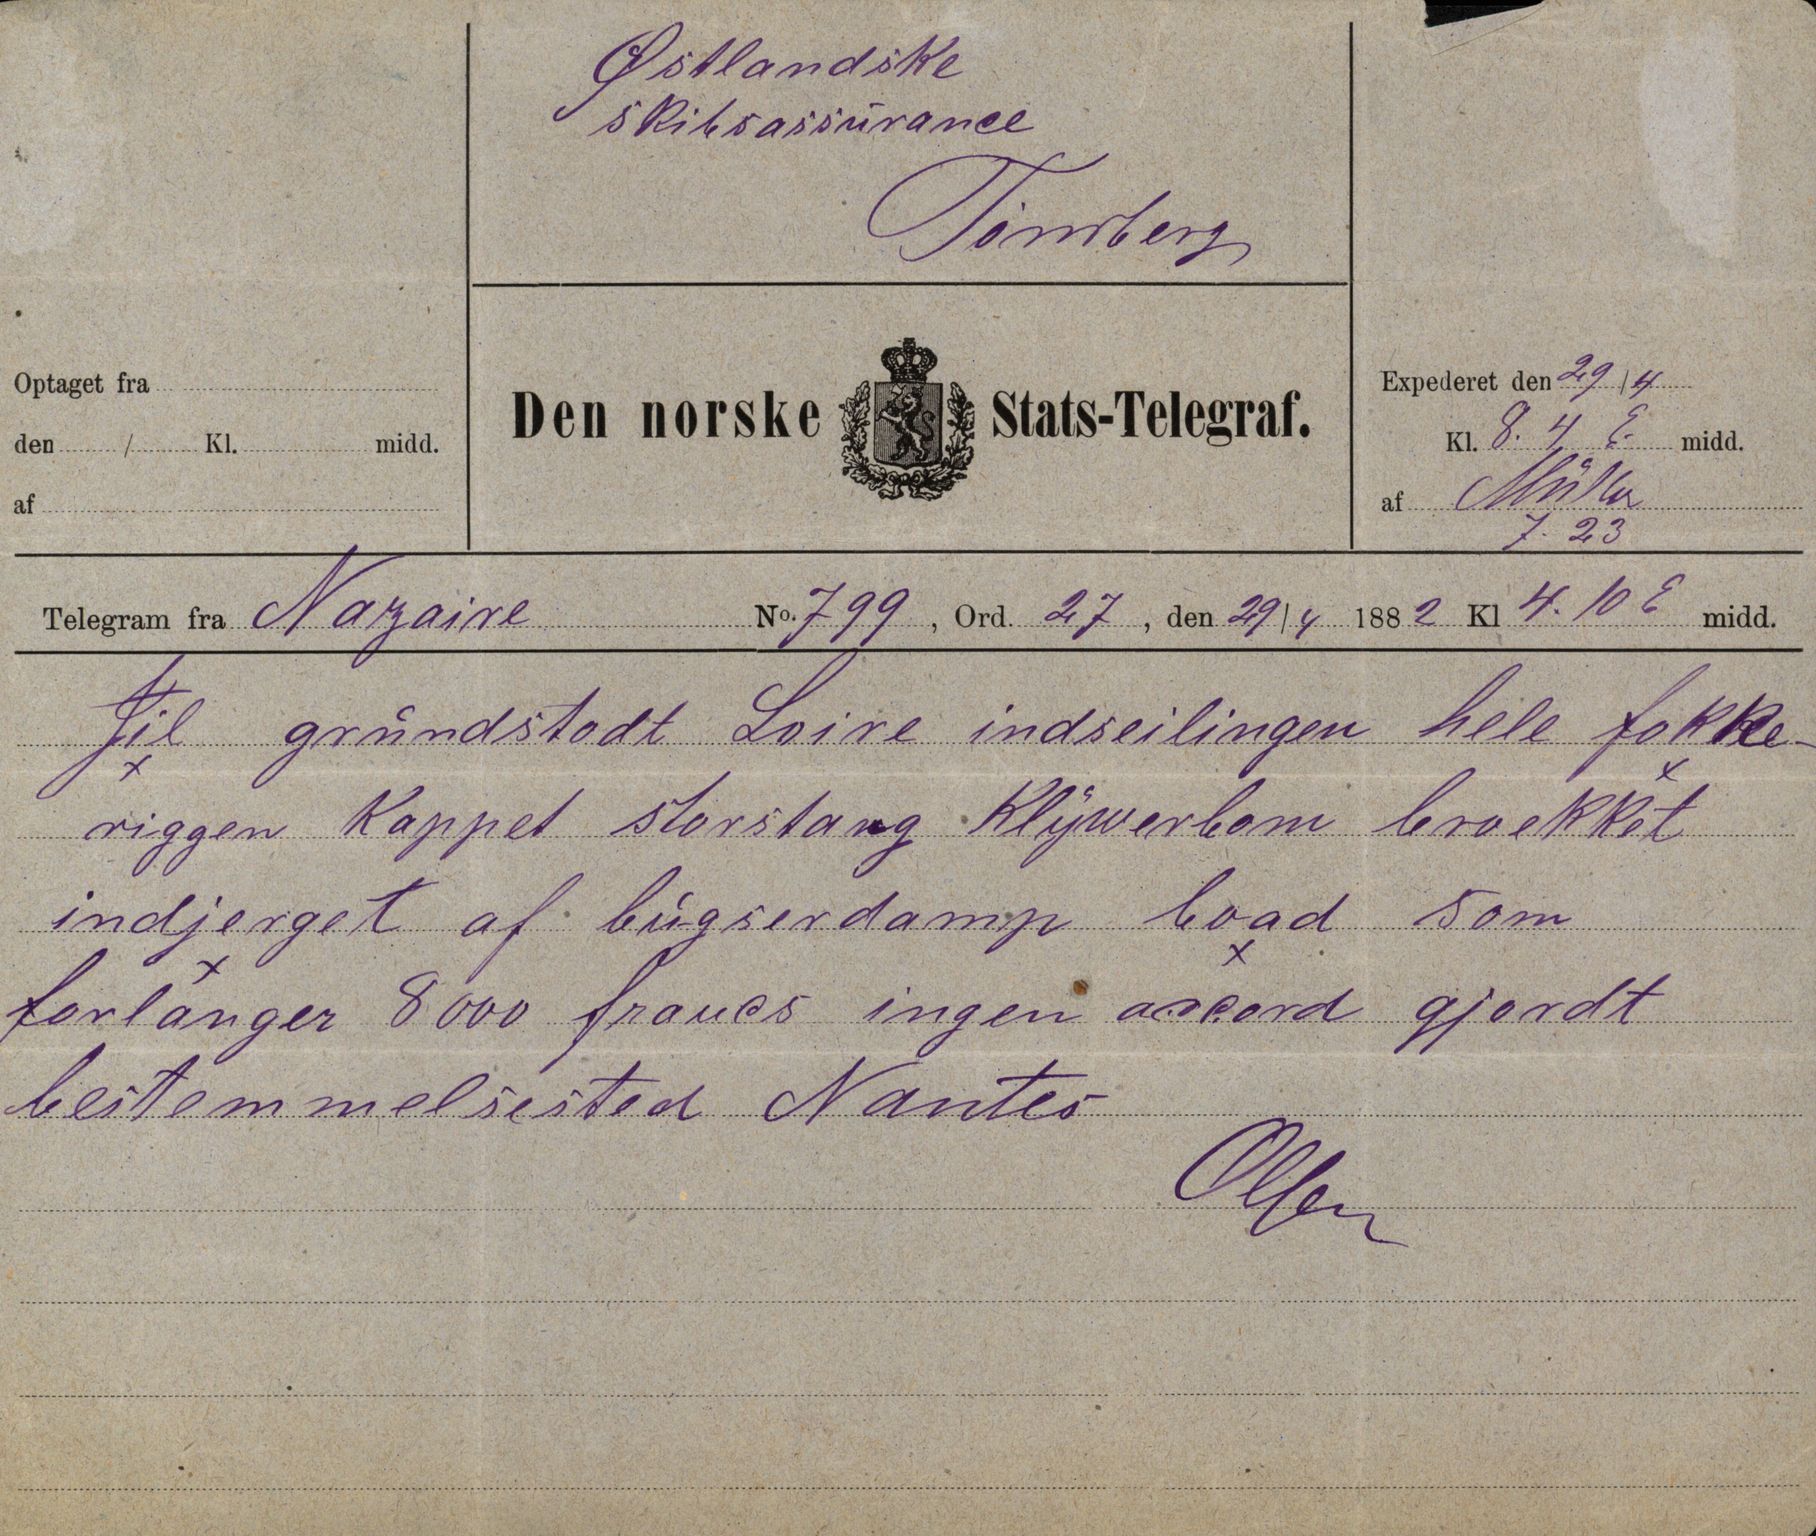 Østlandske
skibsassurance
Tönsberg
Optaget fra
den / Kl. midd.
af
Den norske Stats-Telegraf.
Expederet den 29/4
Kl. 8.4 E. midd.
af Müller
7.23
Telegram fra Nazaire No. 799, Ord. 27, den 29/4 1882 Kl 4.10 E midd.
grŭndstodt Loire indseilingen hele fokke-
riggen kappet storstang klÿwerbom broekket
indjerget af bŭgserdamp boad som
forlänger 8000 francs ingen accord gjordt
bestemmelsested Nantes
Olsen